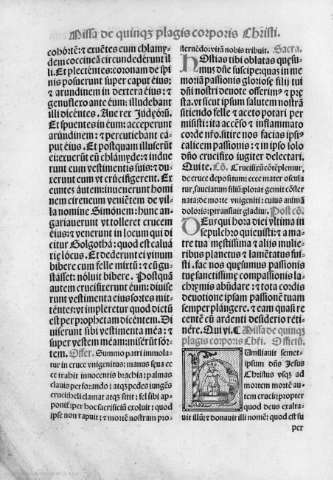 Missa de quinqȝ plagis corporis Christi.
cohortē: ⁊ exuētes eum chlamy-
dem coccineā circundederūt il-
li. Et plectētes: coronam de spi-
nis posuerunt sup caput eius:
⁊ arundinem in dextera eius: ⁊
genuflexo ante eum: illudebant
illi dicētes. Aue rex Judęorū.
Et spuentes in eum: acceperunt
arūndinem: ⁊ percutiebant ca-
put eius. Et postquam illuserūt
ei: exuerūt eū chlamyde: ⁊ indue
runt eum vestimētis suis: ⁊ du-
xerunt eum vt crucifigerent. Ex
euntes autem: inuenerunt homi
nem cireneum veniētem de vil-
la nomine Simonem: hunc an-
gariauerunt vt tolleret crucem
eius: ⁊ venerunt in locum qui di
citur Golgotha: quod est caluā
rię locus. Et dederunt ei vinum
bibere cum felle mixtū: ⁊ cū gu-
stasset: noluit bibere. Postquā
autem crucifixerunt eum: diuise
runt vestimenta eius sortes mit-
tentes: vt impleretur quod dictū
est per prophetam dicentem. Di
uiserunt sibi vestimenta mea: ⁊
super vestem meam: miserūt for-
tem. Offer. Summo patri immola-
tur in cruce vnigenitus: manus suas ec
ce trahit innocentis brachia: palmas
clauis perforando: atqȝ pedes iungēs
cruci
ipse non rapuit: ⁊ mortē nostram pro-
sternēdo: vitā nobis tribuit. Sacra.
HOstias tibi oblatas quęsu-
mus dñe suscipe: quas in me
moriā passionis gloriose filij tui
dñi nostri deuote offerim⁹ ⁊ prę
sta. vt sicut ipsum salutem nostrā
sitiendo felle ⁊ aceto potari per
misisti: ita accēso ⁊ inflammato
corde nos sitire nos facias ipsi⁹
calicem passionis: ⁊ in ipso solo
dño crucifixo iugiter delectari.
Qui tec. Cō. Crucifixū corde plorem⁹,
de cruce depositum: ecce mater oscula
tur, sauciatum filiū plorat gemit
nara: de morte vnigeniti: cuius animā
doloris: pertransiit gladiu. Post cō.
DEus qui hora diei vltima in
sepulchro quieuisti: ⁊ a ma-
tre tua męstissima ⁊ alijs mulie-
ribus planctus ⁊ lamētatus fui-
sti. fac nos quęsumus passionis
tuę sanctissimę compassionis la-
chrymis abūdare: ⁊ tota cordis
deuotione ipsam passionē tuam
semper plāgere, ⁊ eam quasi re
centē cū ardenti desiderio reti-
nēre. Qui vi. Missa de quinqȝ
plagis corporis Chri. Officiū.
HUmiliauit semet-
ipsum dñs Jesus
Christus vsqȝ ad
mortem mortē au-
tem crucis: propter
quod deus exalta-
uit illū: ⁊ donauit illi nomē: quod est su
per